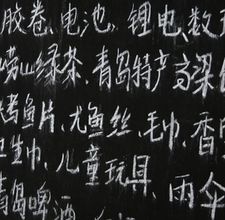 胶卷、电池、锂电、数
崂山绿茶、青岛特产高粱
烤鱼片、尤鱼丝、毛巾、香
卫生巾、儿童玩具
青岛啤酒 雨伞